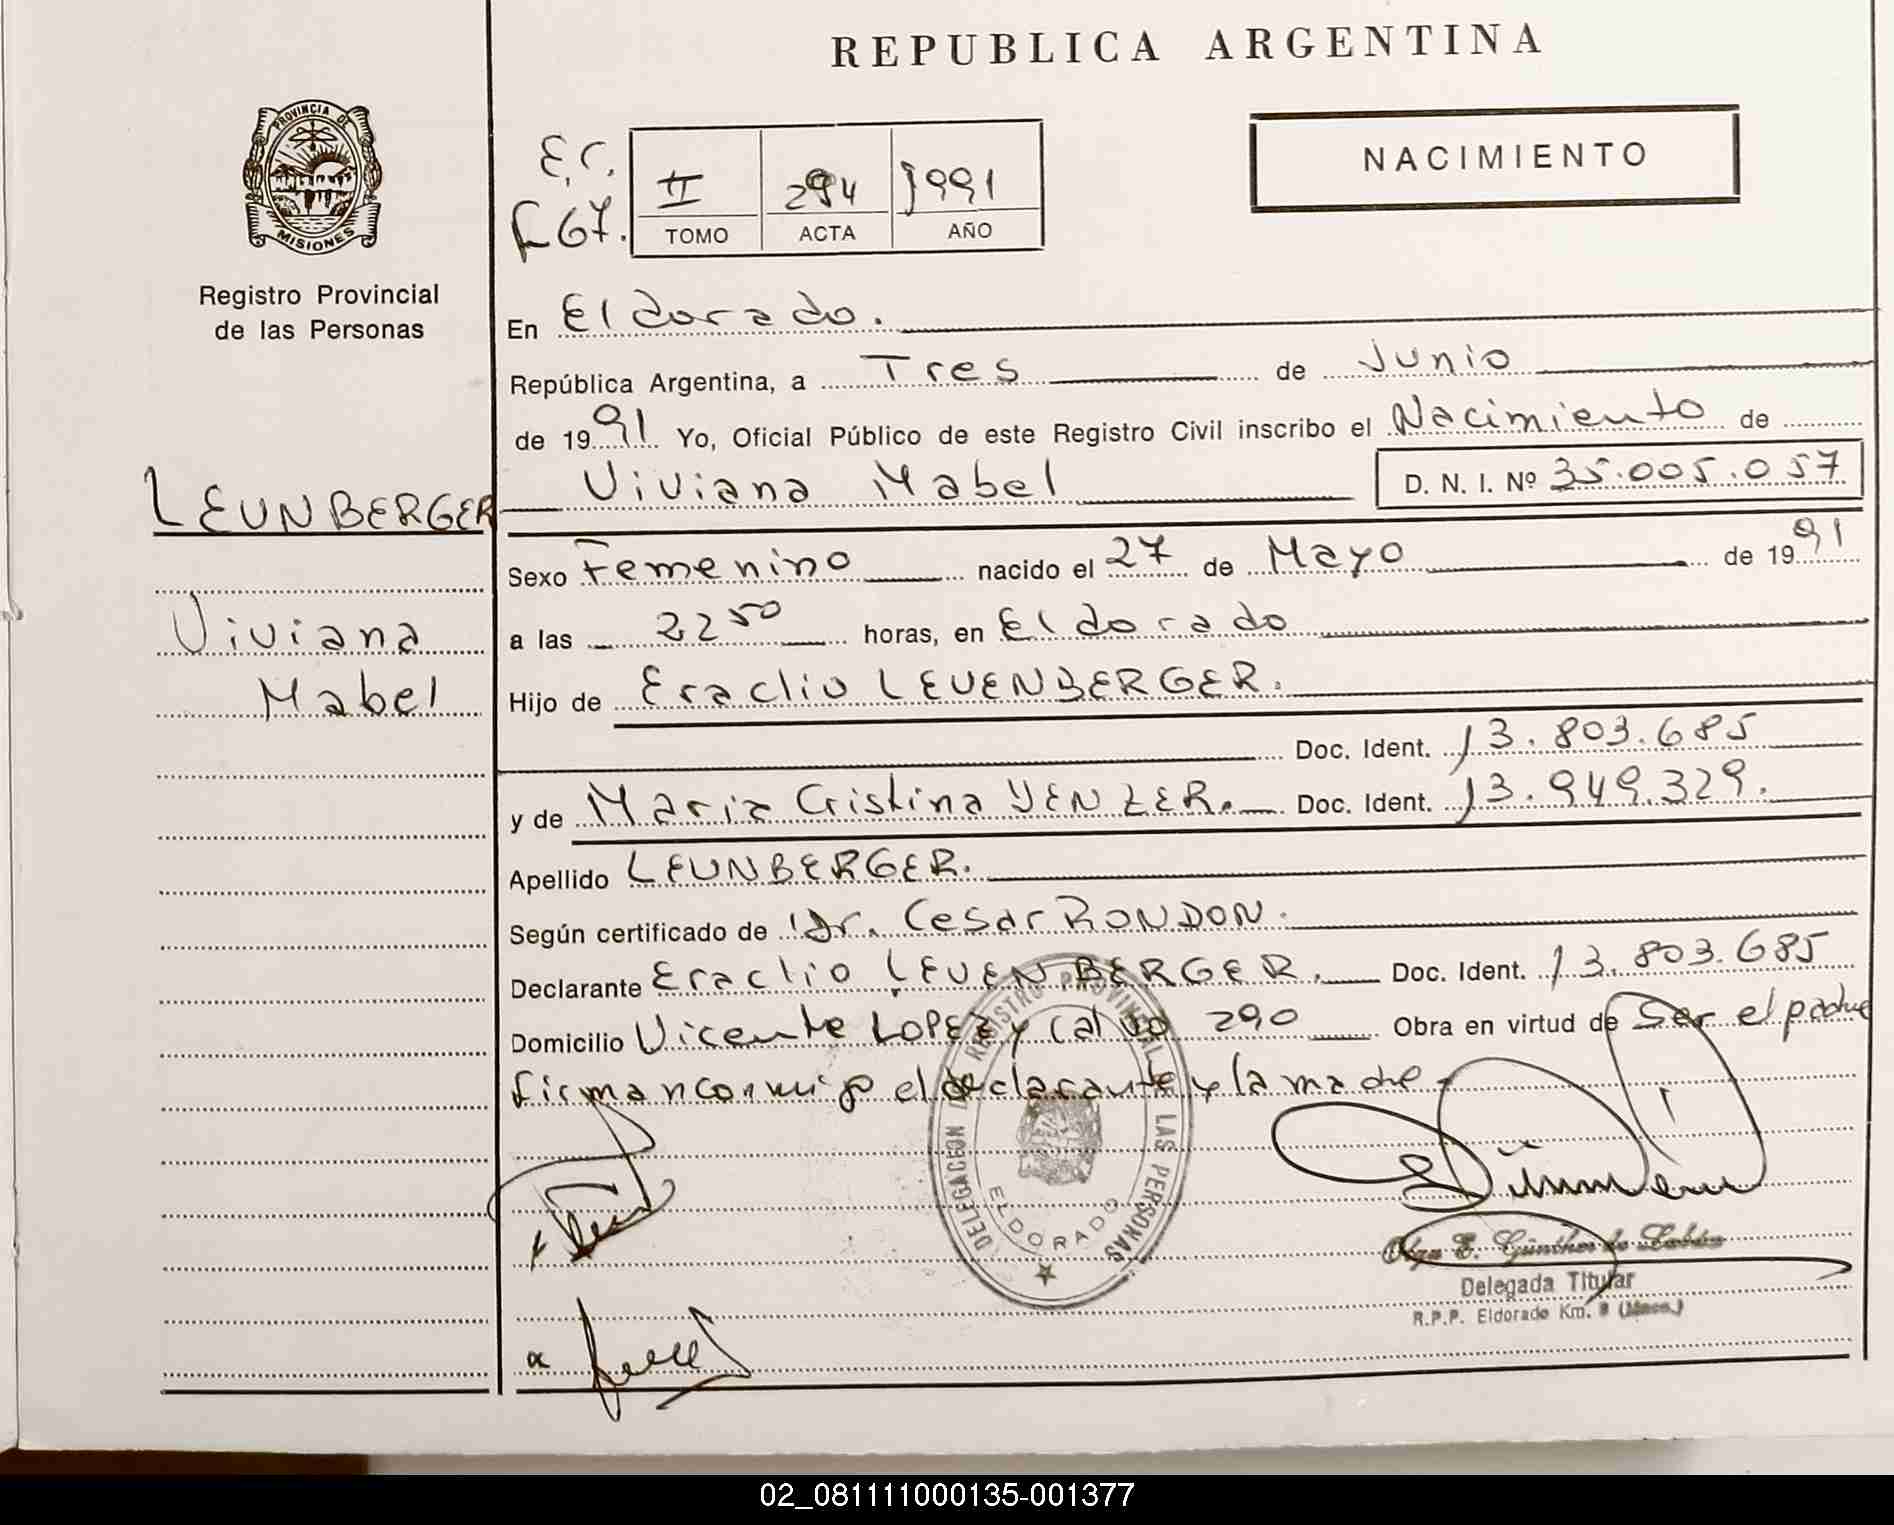 REPUBLICA ARGENTINA
PROVINCIA DE
MISIONES
Registro Provincial
de las Personas
E.C.
F 67.
II 294 1991
TOMO ACTA AÑO
NACIMIENTO
En Eldorado.
República Argentina, a Tres de Junio
de 1991 Yo, Oficial Público de este Registro Civil inscribo el Nacimiento de
Viviana Mabel D. N. I. Nº 35.005.057
LEUNBERGER
Viviana
Mabel
Sexo Femenino nacido el 27 de Mayo de 1991
a las 22 50 horas, en Eldorado
Hijo de Eraclio LEUENBERGER.
Doc. Ident. 13.803.685
y de Maria Cristina YENZER. Doc. Ident. 13.949.329.
Apellido LEUNBERGER.
Según certificado de Dr. Cesar RONDON.
Declarante Eraclio LEUENBERGER. Doc. Ident. 13.803.685
Domicilio Vicente LOPEZ y Calvo 290 Obra en virtud de Ser el padre
firman conmigo el declarante y la madre
DELEGACION DEL REGISTRO PROVINCIAL DE LAS PERSONAS
ELDORADO
Olga E. Günther de
Delegada Titular
R.P.P. Eldorado Km. 9 (Mnes.)
02_081111000135-001377